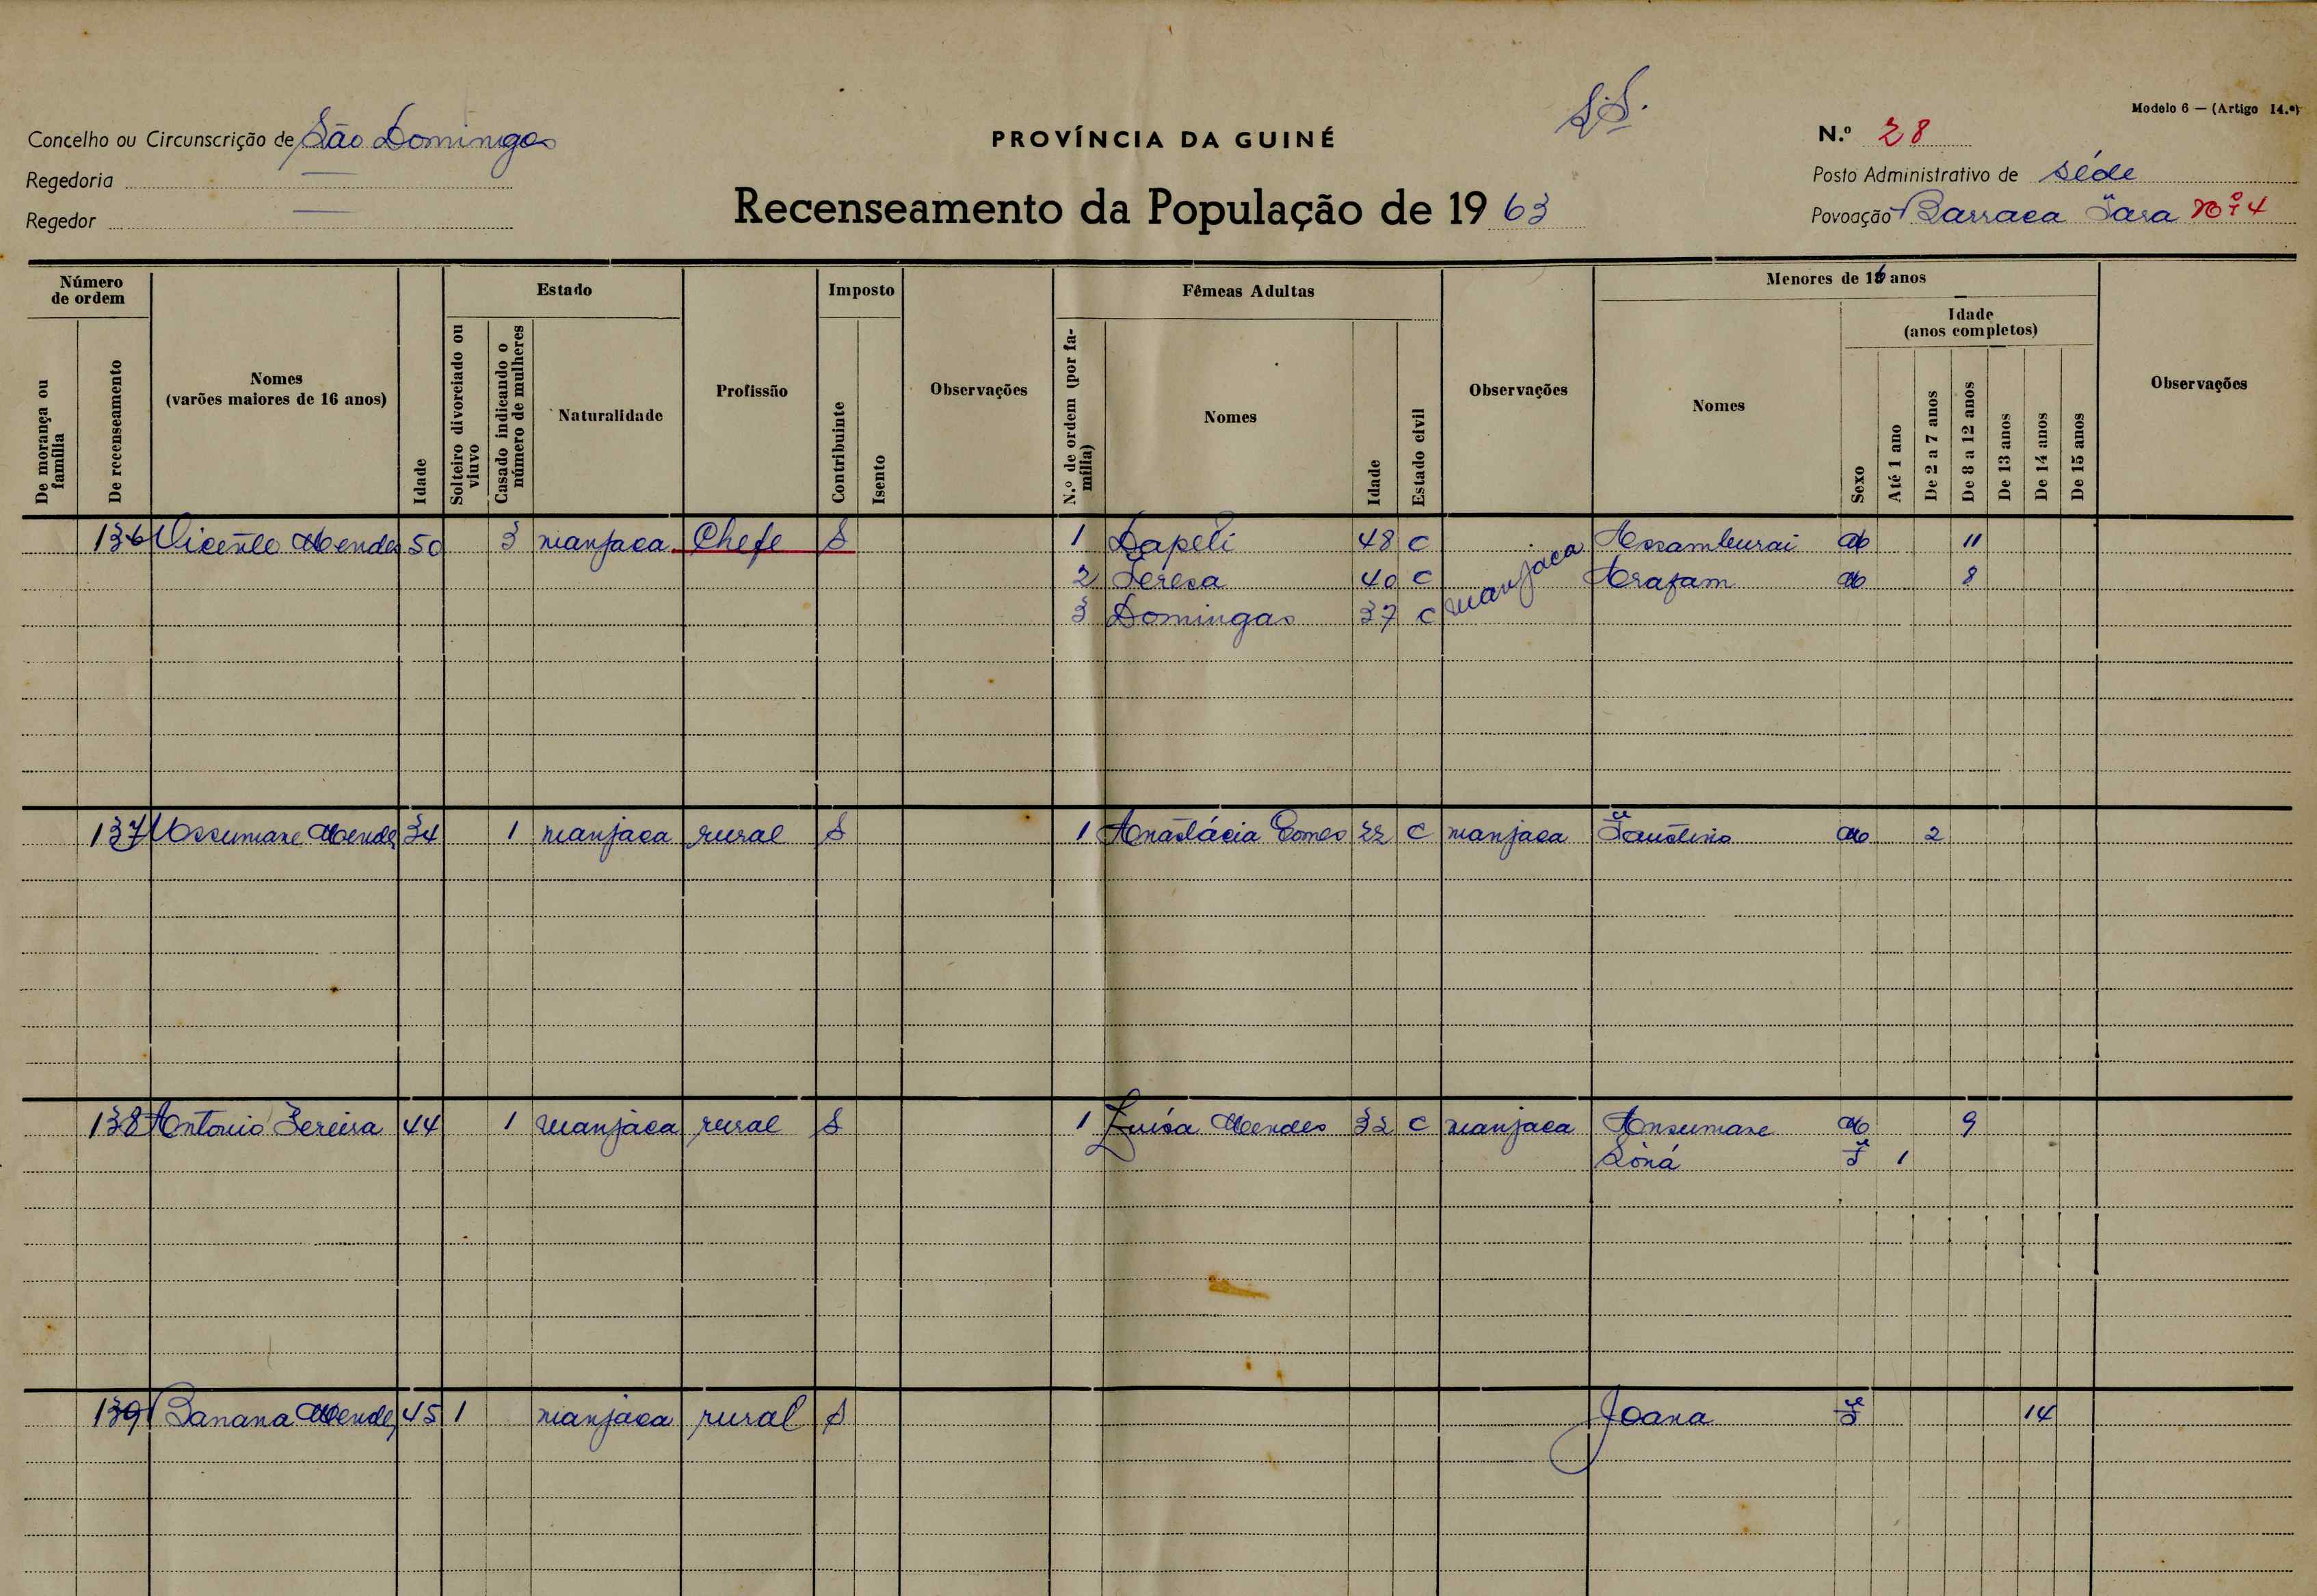 S.S.
Modelo 6 — (Artigo 14.º)
Concelho ou Circunscrição de São Domingos
PROVÍNCIA DA GUINÉ
N.º 28
Regedoria —
Posto Administrativo de Séde
Regedor —
Recenseamento da População de 1963
Povoação Barraca Fara Nº 4
Número de ordem
De morança ou família
De recenseamento
Nomes (varões maiores de 16 anos)
Idade
Estado
Solteiro divorciado ou viuvo
Casado indicando o número de mulheres
Naturalidade
Profissão
Imposto
Contribuinte
Isento
Observações
Fêmeas Adultas
N.º de ordem (por família)
Nomes
Idade
Estado civil
Observações
Menores de 16 anos
Nomes
Sexo
Idade (anos completos)
Até 1 ano
De 2 a 7 anos
De 8 a 12 anos
De 13 anos
De 14 anos
De 15 anos
Observações
136 Vicente Mendes 50 3 manjaca Chefe S 1 Dapeli 48 C manjaca Assamburai M 11
2 Teresa 40 C Arafam M 8
3 Domingas 37 C
137 Ussumane Mendes 34 1 manjaca rural S 1 Anastácia Gomes 22 C manjaca Faustino M 2
138 Antonio Pereira 44 1 manjaca rural S 1 Luísa Mendes 32 C manjaca Ansumane M 9
Loná F 1
139 Banana Mendes 45 1 manjaca rural S Joana F 14